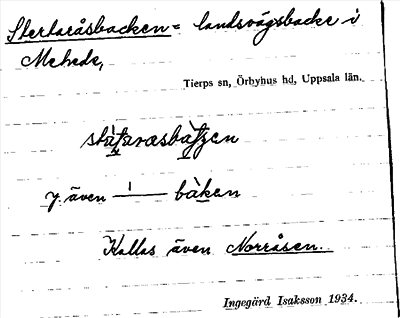 Stertaråsbacken = landsvägsbacke i
Mehede,
Tierps sn, Örbyhus hd, Uppsala län.
y. även — bàken
Kallas även Norråsen.
Ingegärd Isaksson 1934.